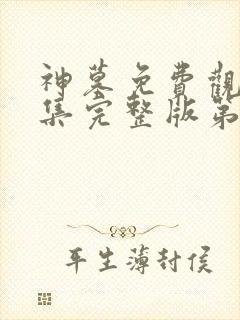 神墓免費觀
集完整版第
平生薄封侯